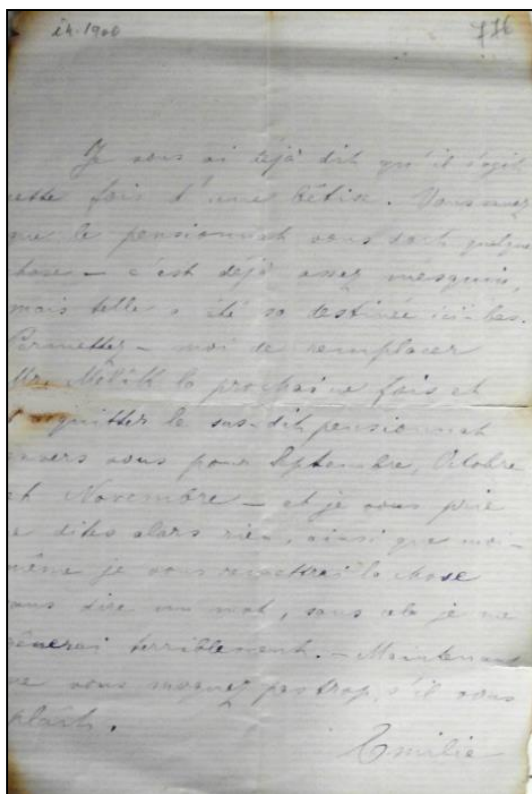 14.1900 776
Je vous ai déjà dit qu'il s'agit
cette fois d'une bêtise. Vous savez
que le pensionnat vous doit quelque
chose – c'est déjà assez mesquin,
mais telle a été sa destinée ici-bas.
Permettez-moi de remplacer
Mr. la prochaine fois et
d'aquitter le sus-dit pensionnat
envers vous pour Septembre, Octobre
et Novembre – et je vous prie
ne dites alors rien, ainsi que moi-
même je vous remettrai la chose
sans dire un mot, sans cela je me
gênerai terriblement. – Maintenant
ne vous moquez pas trop, s'il vous
plaît.
Emilie